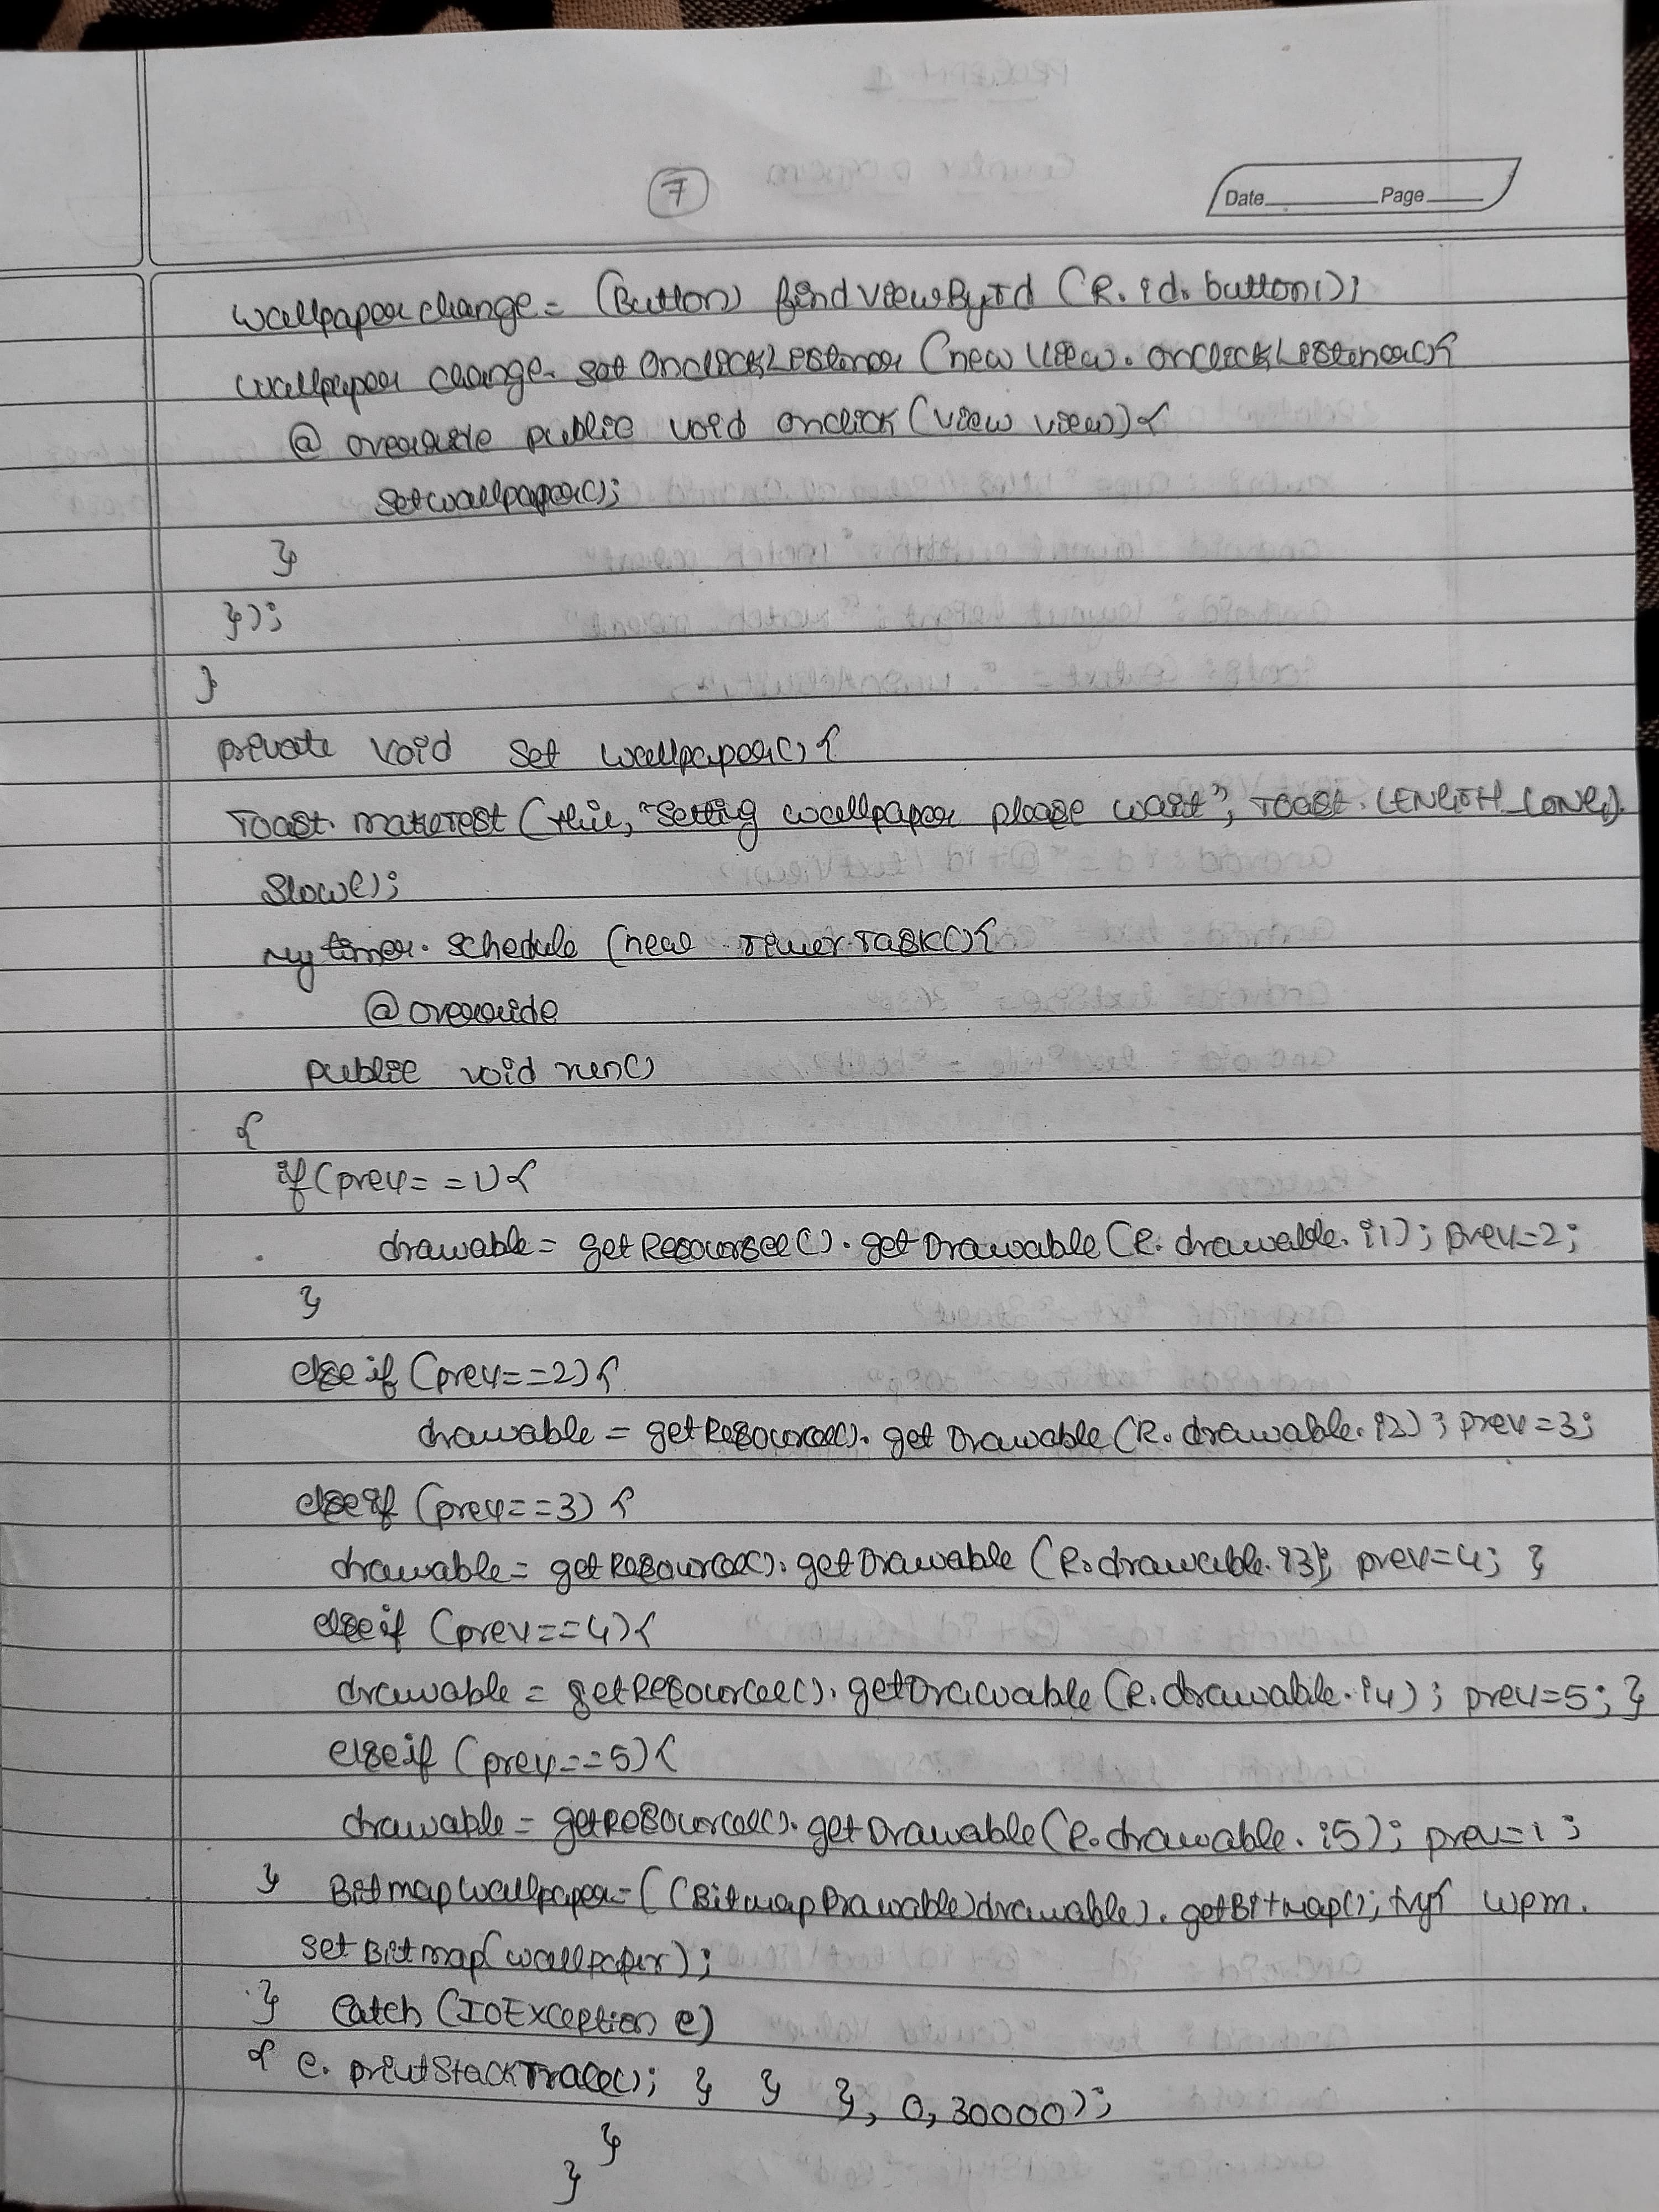 7
Date Page
wallpaper change = (Button) findViewById (R.id.button1);
wallpaper change. set OnclickListener (new View. OnClickListener(){
@ override public void onclick (View view) {
setwallpaper();
}
});
}
private void set wallpaper() {
Toast. makeTest (this, "Setting wallpaper please wait", Toast. LENGTH_LONG).
Slow();
My timer. schedule (new Timer Task(){
@ override
public void run()
{
if (prev = = 1) {
drawable = get Resources(). get Drawable (R. drawable. i1); prev=2;
}
else if (prev==2) {
drawable = get Resources(). get Drawable (R. drawable. i2) ; prev =3;
else if (prev==3) {
drawable = get Resources(). get Drawable (R. drawable. i3); prev=4; }
else if (prev==4) {
drawable = getResources(). getDrawable (R. drawable. i4) ; prev=5; }
else if (prev==5) {
drawable = getResources(). get Drawable (R. drawable. i5); prev=1;
} Bitmap wallpaper = ((Bitmap Drawable) drawable). getBitmap(); try{ wpm.
set Bitmap( wallpaper);
} Catch (IOException e)
{ e. printStackTrace(); } } }, 0, 30000);
}
}